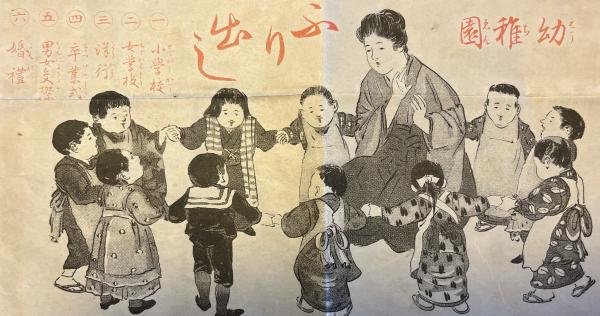 幼稚園
ふり出し
一 小學校
二 女學校
三 流行
四 卒業式
五 男女交際
六 婚禮